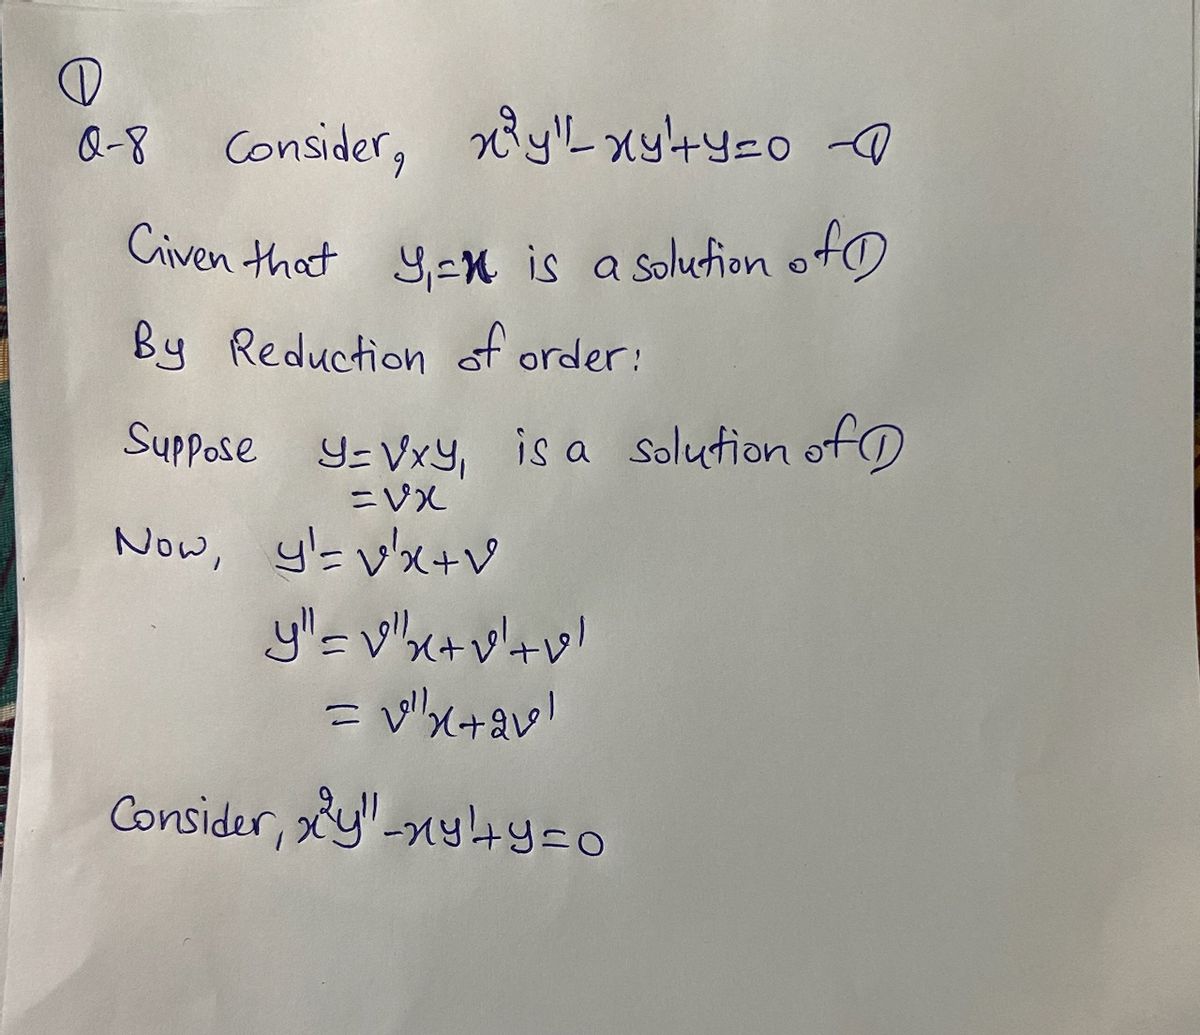 ①
Q-8 Consider, x²y''-xy'+y=0 -①
Given that y₁=x is a solution of ①
By Reduction of order:
Suppose y=v×y₁ is a solution of ①
=vx
Now, y'=v'x+v
y''=v''x+v'+v'
=v''x+2v'
Consider, x²y''-xy'+y=0